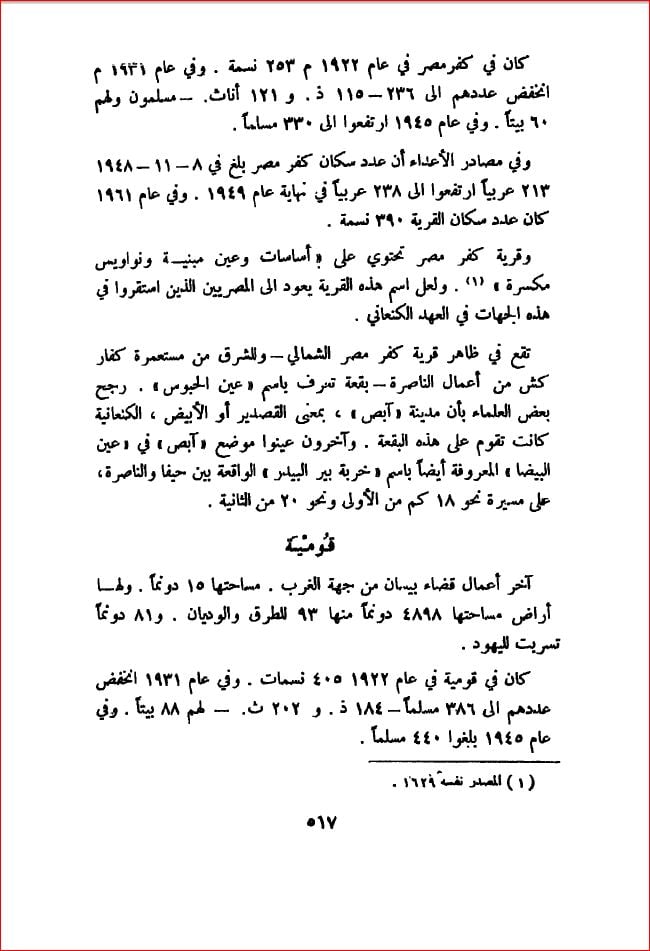 كان في كفر مصر في عام ١٩٢٢ م ٢٥٣ نسمة . وفي عام ١٩٣١ م
انخفض عددهم الى ٢٣٦ – ١١٥ ذ . و ١٢١ أناث. – مسلمون ولهم
٦٠ بيتاً . وفي عام ١٩٤٥ ارتفعوا الى ٣٣٠ مسلماً .
وفي مصادر الأعداء أن عدد سكان كفر مصر بلغ في ٨ – ١١ – ١٩٤٨
٢١٣ عربياً ارتفعوا الى ٢٣٨ عربياً في نهاية عام ١٩٤٩ . وفي عام ١٩٦١
كان عدد سكان القرية ٣٩٠ نسمة .
وقرية كفر مصر تحتوي على « أساسات وعين مبنيـة ونواويس
مكسرة » (١) . ولعل اسم هذه القرية يعود الى المصريين الذين استقروا في
هذه الجهات في العهد الكنعاني .
تقع في ظاهر قرية كفر مصر الشمالي – وللشرق من مستعمرة كفار
كش من أعمال الناصرة – بقعة تعرف باسم « عين الحبوس » . رجح
بعض العلماء بأن مدينة « آبص » ، بمعنى القصدير أو الأبيض ، الكنعانية
كانت تقوم على هذه البقعة . وآخرون عينوا موضع « آبص » في « عين
البيضا » المعروفة أيضاً باسم « خربة بير البيدر » الواقعة بين حيفا والناصرة،
على مسيرة نحو ١٨ كم من الأولى ونحو ٢٠ من الثانية .
قُومْيَة
آخر أعمال قضاء بيسان من جهة الغرب . مساحتها ١٥ دونماً . ولهـا
أراض مساحتها ٤٨٩٨ دونماً منها ٩٣ للطرق والوديان . و٨١ دونماً
تسربت لليهود .
كان في قومية في عام ١٩٢٢ ٤٠٥ نسمات . وفي عام ١٩٣١ انخفض
عددهم الى ٣٨٦ مسلماً – ١٨٤ ذ . و ٢٠٢ ث. – لهم ٨٨ بيتاً . وفي
عام ١٩٤٥ بلغوا ٤٤٠ مسلماً .
(١) المصدر نفسه ١٦٢٩ .
٥١٧